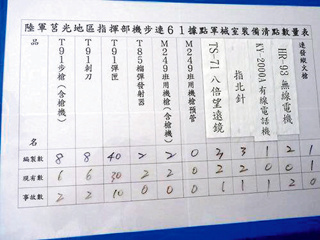 陸軍莒光地區指揮部機步連61據點軍械室裝備清點數量表
品名 T91步槍(含槍機) T91刺刀 T91彈匣 T85榴彈發射器 M249班用機槍(含槍機) M249班用機槍預管 TS-71八倍望遠鏡 指北針 KY-2000A有線電話機 HR-93無線電機 連發縱火槍
編製數 8 8 40 2 2 0 2 3 1 2 1
現有數 6 6 30 2 2 0 2 2 0 0 1
事故數 2 2 10 0 0 0 1 1 2 0